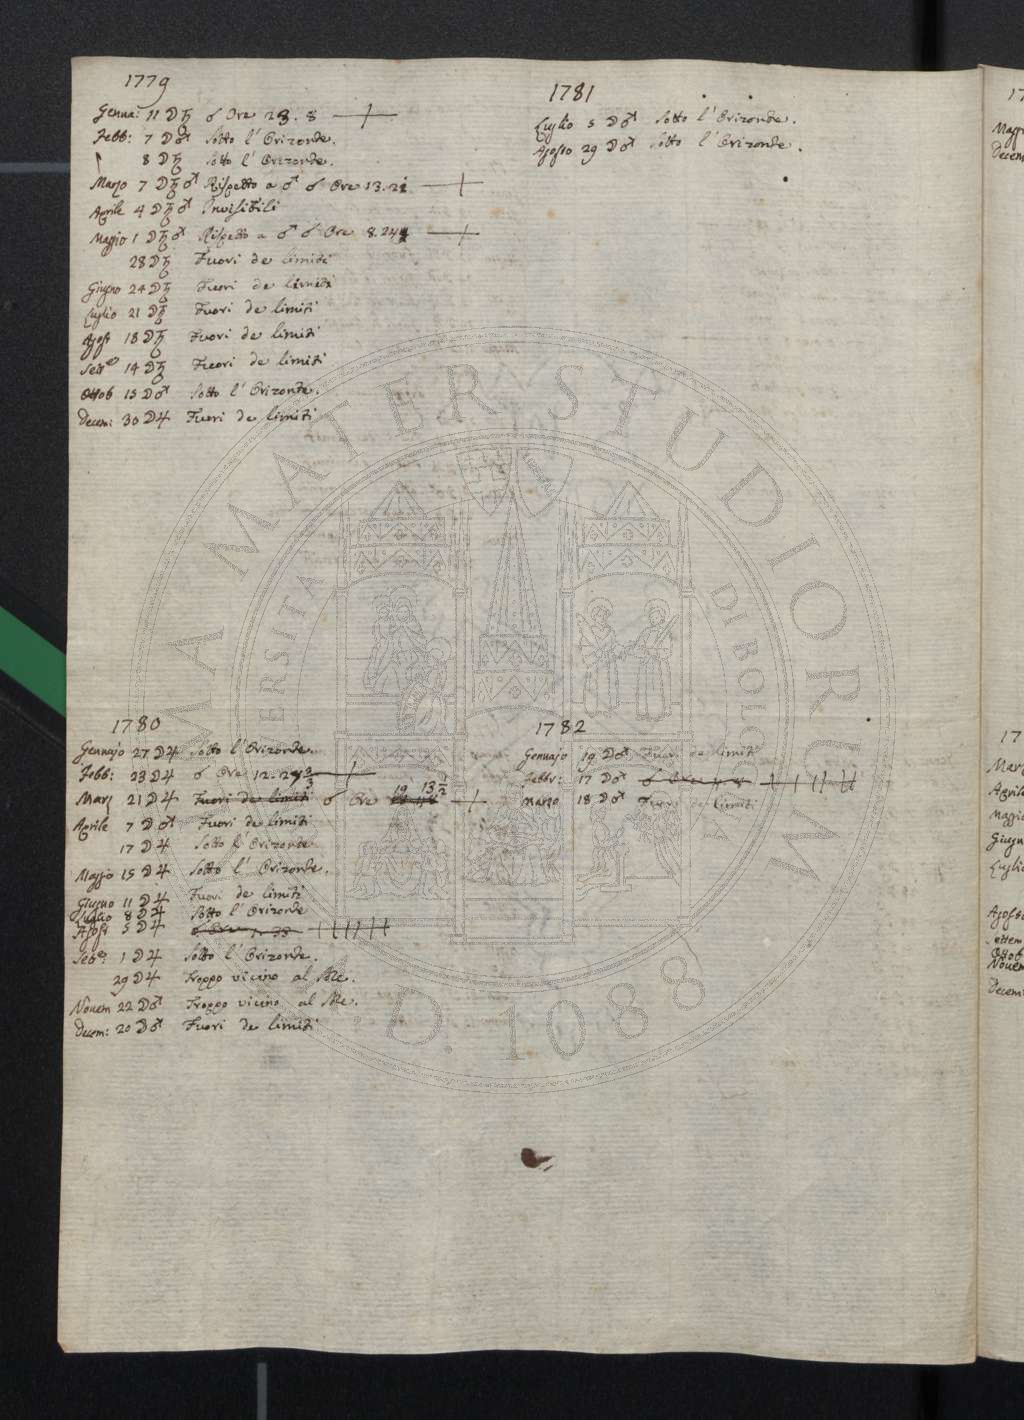 1779
Genna: 11 ☽ ♄ ☌ Ore 23. 8
Febb: 7 ☽ ♂ Sotto l' Orizonte.
8 ☽ ♄ Sotto l' Orizonte.
Marzo 7 ☽ ♄ ♂ Rispetto a ♂ ☌ Ore 13.
Aprile 4 ☽ ♄ ♂ Invisibili
Maggio 1 ☽ ♄ ♂ Rispetto a ♂ ☌ Ore 8.
28 ☽ ♄ Fuori de limiti
Giugno 24 ☽ ♄ Fuori de limiti
Luglio 21 ☽ ♄ Fuori de limiti
Agost 18 ☽ ♄ Fuori de limiti
Sett.e 14 ☽ ♄ Fuori de limiti
Ottob 15 ☽ ♂ Sotto l' Orizonte.
Decem: 30 ☽ ♃ Fuori de limiti
1780
Gennajo 27 ☽ ♃ Sotto l' Orizonte.
Febb: 23 ☽ ♃ ☌ Ore 12.
Marz 21 ☽ ♃ Fuori de limiti ☌ Ore 19 13 1/2
Aprile 7 ☽ ♂ Fuori de limiti
17 ☽ ♃ Sotto l' Orizonte
Maggio 15 ☽ ♃ Sotto l' Orizonte.
Giugno 11 ☽ ♃ Fuori de limiti
Luglio 8 ☽ ♃ Sotto l' Orizonte
Agost 5 ☽ ♃
Sett.e: 1 ☽ ♃ Sotto l' Orizonte.
29 ☽ ♃ Troppo vicino al Sole.
Novem 22 ☽ ♂ Troppo vicino al Sole.
Decem: 20 ☽ ♂ Fuori de limiti
1781
Luglio 5 ☽ ♂ Sotto l' Orizonte.
Agosto 29 ☽ ♂ Sotto l' Orizonte.
1782
Gennajo 19 ☽ ♂ Fuori de limiti
Febbr: 17 ☽ ♂
Marzo 18 ☽ ♂ Fuori de limiti
17
Maggi
Decem
17
Marz
Aprile
Maggio
Giugn
Luglio
Agosto
Settem
Ottob
Novem
Decem
ALMA MATER STUDIORUM
A.D. 1088